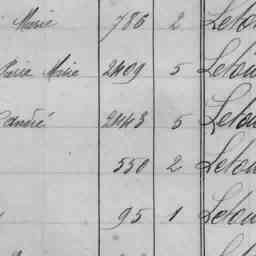 Marie 786 2 Letou
Marie Marie 2409 5 Letou
André 2143 5 Letou
550 2 Letou
95 1 Letou